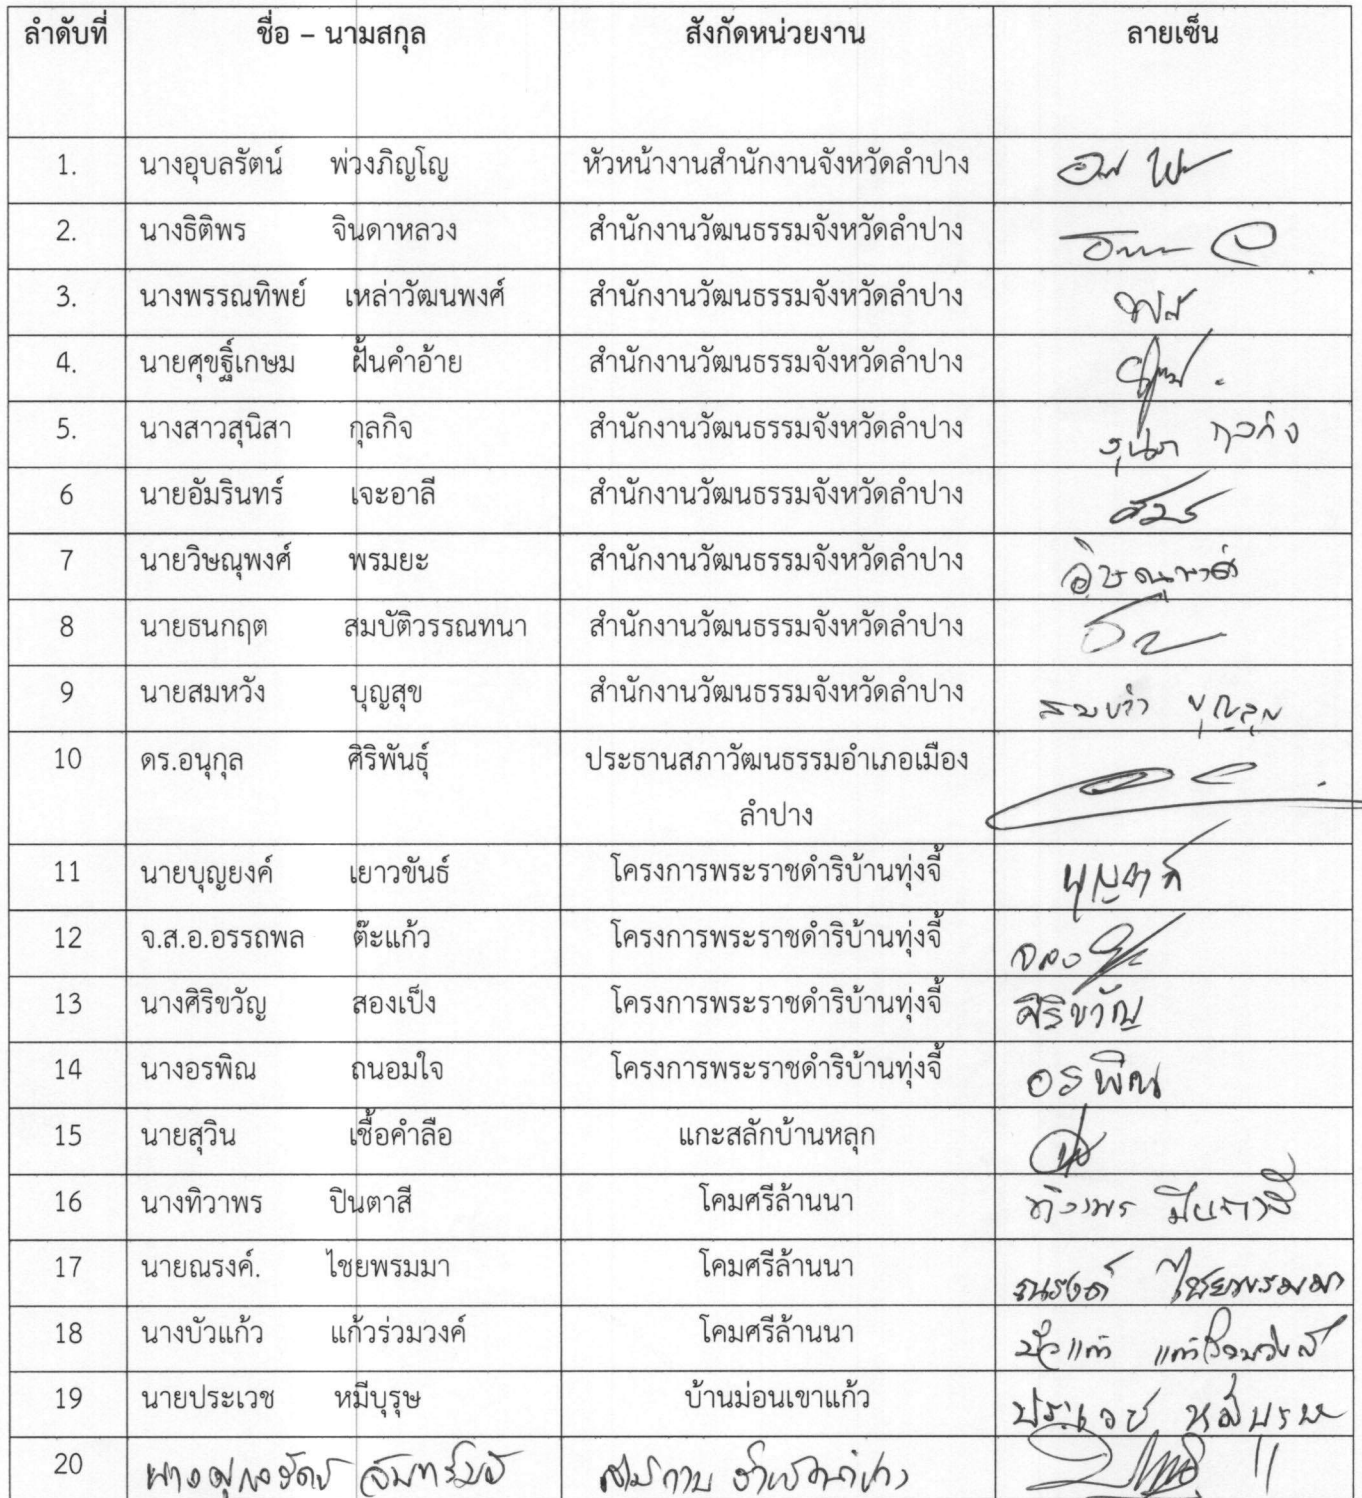 ลำดับที่ ชื่อ – นามสกุล สังกัดหน่วยงาน ลายเซ็น
1. นางอุบลรัตน์ พ่วงภิญโญ หัวหน้างานสำนักงานจังหวัดลำปาง
2. นางธิติพร จินดาหลวง สำนักงานวัฒนธรรมจังหวัดลำปาง
3. นางพรรณทิพย์ เหล่าวัฒนพงศ์ สำนักงานวัฒนธรรมจังหวัดลำปาง
4. นายศุขฐิ์เกษม ฝั้นคำอ้าย สำนักงานวัฒนธรรมจังหวัดลำปาง
5. นางสาวสุนิสา กุลกิจ สำนักงานวัฒนธรรมจังหวัดลำปาง
6 นายอัมรินทร์ เจะอาลี สำนักงานวัฒนธรรมจังหวัดลำปาง
7 นายวิษณุพงศ์ พรมยะ สำนักงานวัฒนธรรมจังหวัดลำปาง วิษณุพงศ์
8 นายธนกฤต สมบัติวรรณทนา สำนักงานวัฒนธรรมจังหวัดลำปาง
9 นายสมหวัง บุญสุข สำนักงานวัฒนธรรมจังหวัดลำปาง สมหวัง บุญสุข
10 ดร.อนุกุล ศิริพันธุ์ ประธานสภาวัฒนธรรมอำเภอเมือง
ลำปาง
11 นายบุญยงค์ เยาวขันธ์ โครงการพระราชดำริบ้านทุ่งจี้
12 จ.ส.อ.อรรถพล ต๊ะแก้ว โครงการพระราชดำริบ้านทุ่งจี้
13 นางศิริขวัญ สองเป็ง โครงการพระราชดำริบ้านทุ่งจี้ ศิริขวัญ
14 นางอรพิณ ถนอมใจ โครงการพระราชดำริบ้านทุ่งจี้ อรพิณ
15 นายสุวิน เชื้อคำลือ แกะสลักบ้านหลุก
16 นางทิวาพร ปินตาสี โคมศรีล้านนา ทิวาพร ปินตาสี
17 นายณรงค์. ไชยพรมมา โคมศรีล้านนา ณรงค์ ไชยพรมมา
18 นางบัวแก้ว แก้วร่วมวงค์ โคมศรีล้านนา บัวแก้ว แก้วร่วมวงค์
19 นายประเวช หมีบุรุษ บ้านม่อนเขาแก้ว ประเวช หมีบุรุษ
20